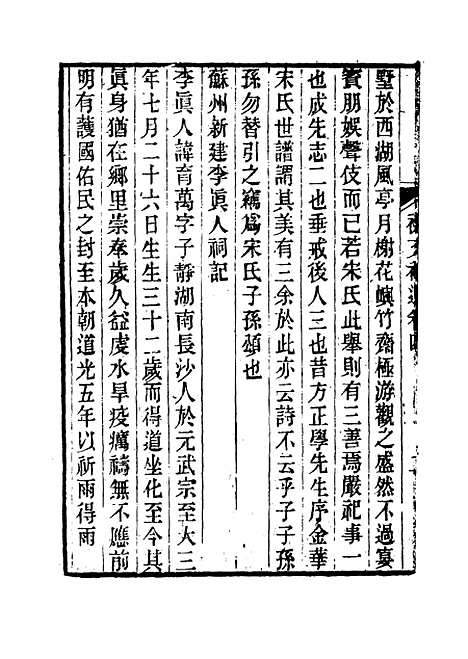 墅於西湖風亭月榭花嶼竹齋極游觀之盛然不過宴
賓朋娛聲伎而已若宋氏此舉則有三善焉嚴祀事一
也成先志二也垂戒後人三也昔方正學先生序金華
宋氏世譜謂其美有三余於此亦云詩不云乎子子孫
孫勿替引之竊爲宋氏子孫頌也
蘇州新建李眞人祠記
李眞人諱育萬字子靜湖南長沙人於元武宗至大三
年七月二十六日生生三十二歲而得道坐化至今其
眞身猶在鄉里崇奉歲久益虔水旱疫癘禱無不應前
明有護國佑民之封至本朝道光五年以祈雨得雨